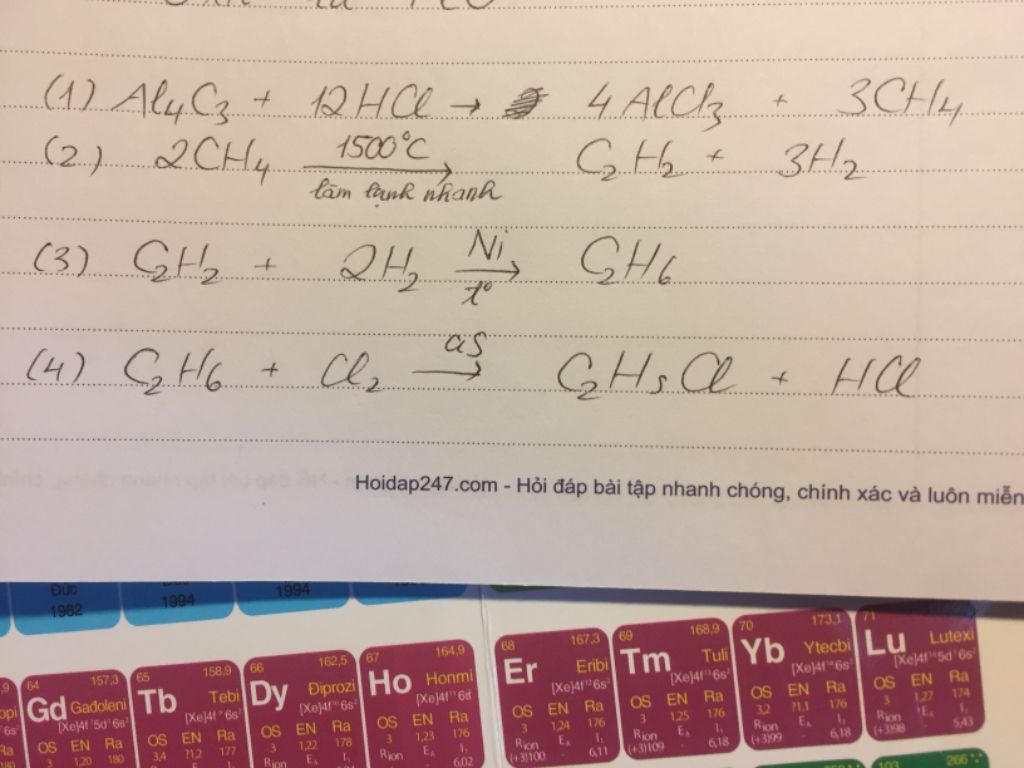 (1) Al₄C₃ + 12HCl → 4AlCl₃ + 3CH₄
1500°C
(2) 2CH₄ → C₂H₂ + 3H₂
làm lạnh nhanh
Ni
(3) C₂H₂ + 2H₂ → C₂H₆
t°
as
(4) C₂H₆ + Cl₂ → C₂H₅Cl + HCl
Hoidap247.com - Hỏi đáp bài tập nhanh chóng, chính xác và luôn miễn
Đức 1994
1982 1994
64 157,3 65 158,9 66 162,5 67 164,9 68 167,3 69 168,9 70 173,1 71
Gd Gađoleni Tb Tebi Dy Điprozi Ho Honmi Er Eribi Tm Tuli Yb Ytecbi Lu Lutexi
[Xe]4f⁷5d¹6s² [Xe]4f⁹6s² [Xe]4f¹⁰6s² [Xe]4f¹¹6s² [Xe]4f¹²6s² [Xe]4f¹³6s² [Xe]4f¹⁴6s² [Xe]4f¹⁴5d¹6s²
OS EN Ra OS EN Ra OS EN Ra OS EN Ra OS EN Ra OS EN Ra OS EN Ra OS EN Ra
3 1,20 180 3,4 ?1,2 177 3 1,22 178 3 1,23 176 3 1,24 176 3 1,25 176 3,2 ?1,1 176 3 1,27 174
Rion Eₐ I₁ Rion Eₐ I₁ Rion Eₐ I₁ Rion Eₐ I₁ Rion Eₐ I₁
6,02 (+3)100 6,11 (+3)109 6,18 (+3)99 6,18 (+3)98 5,43
103 266